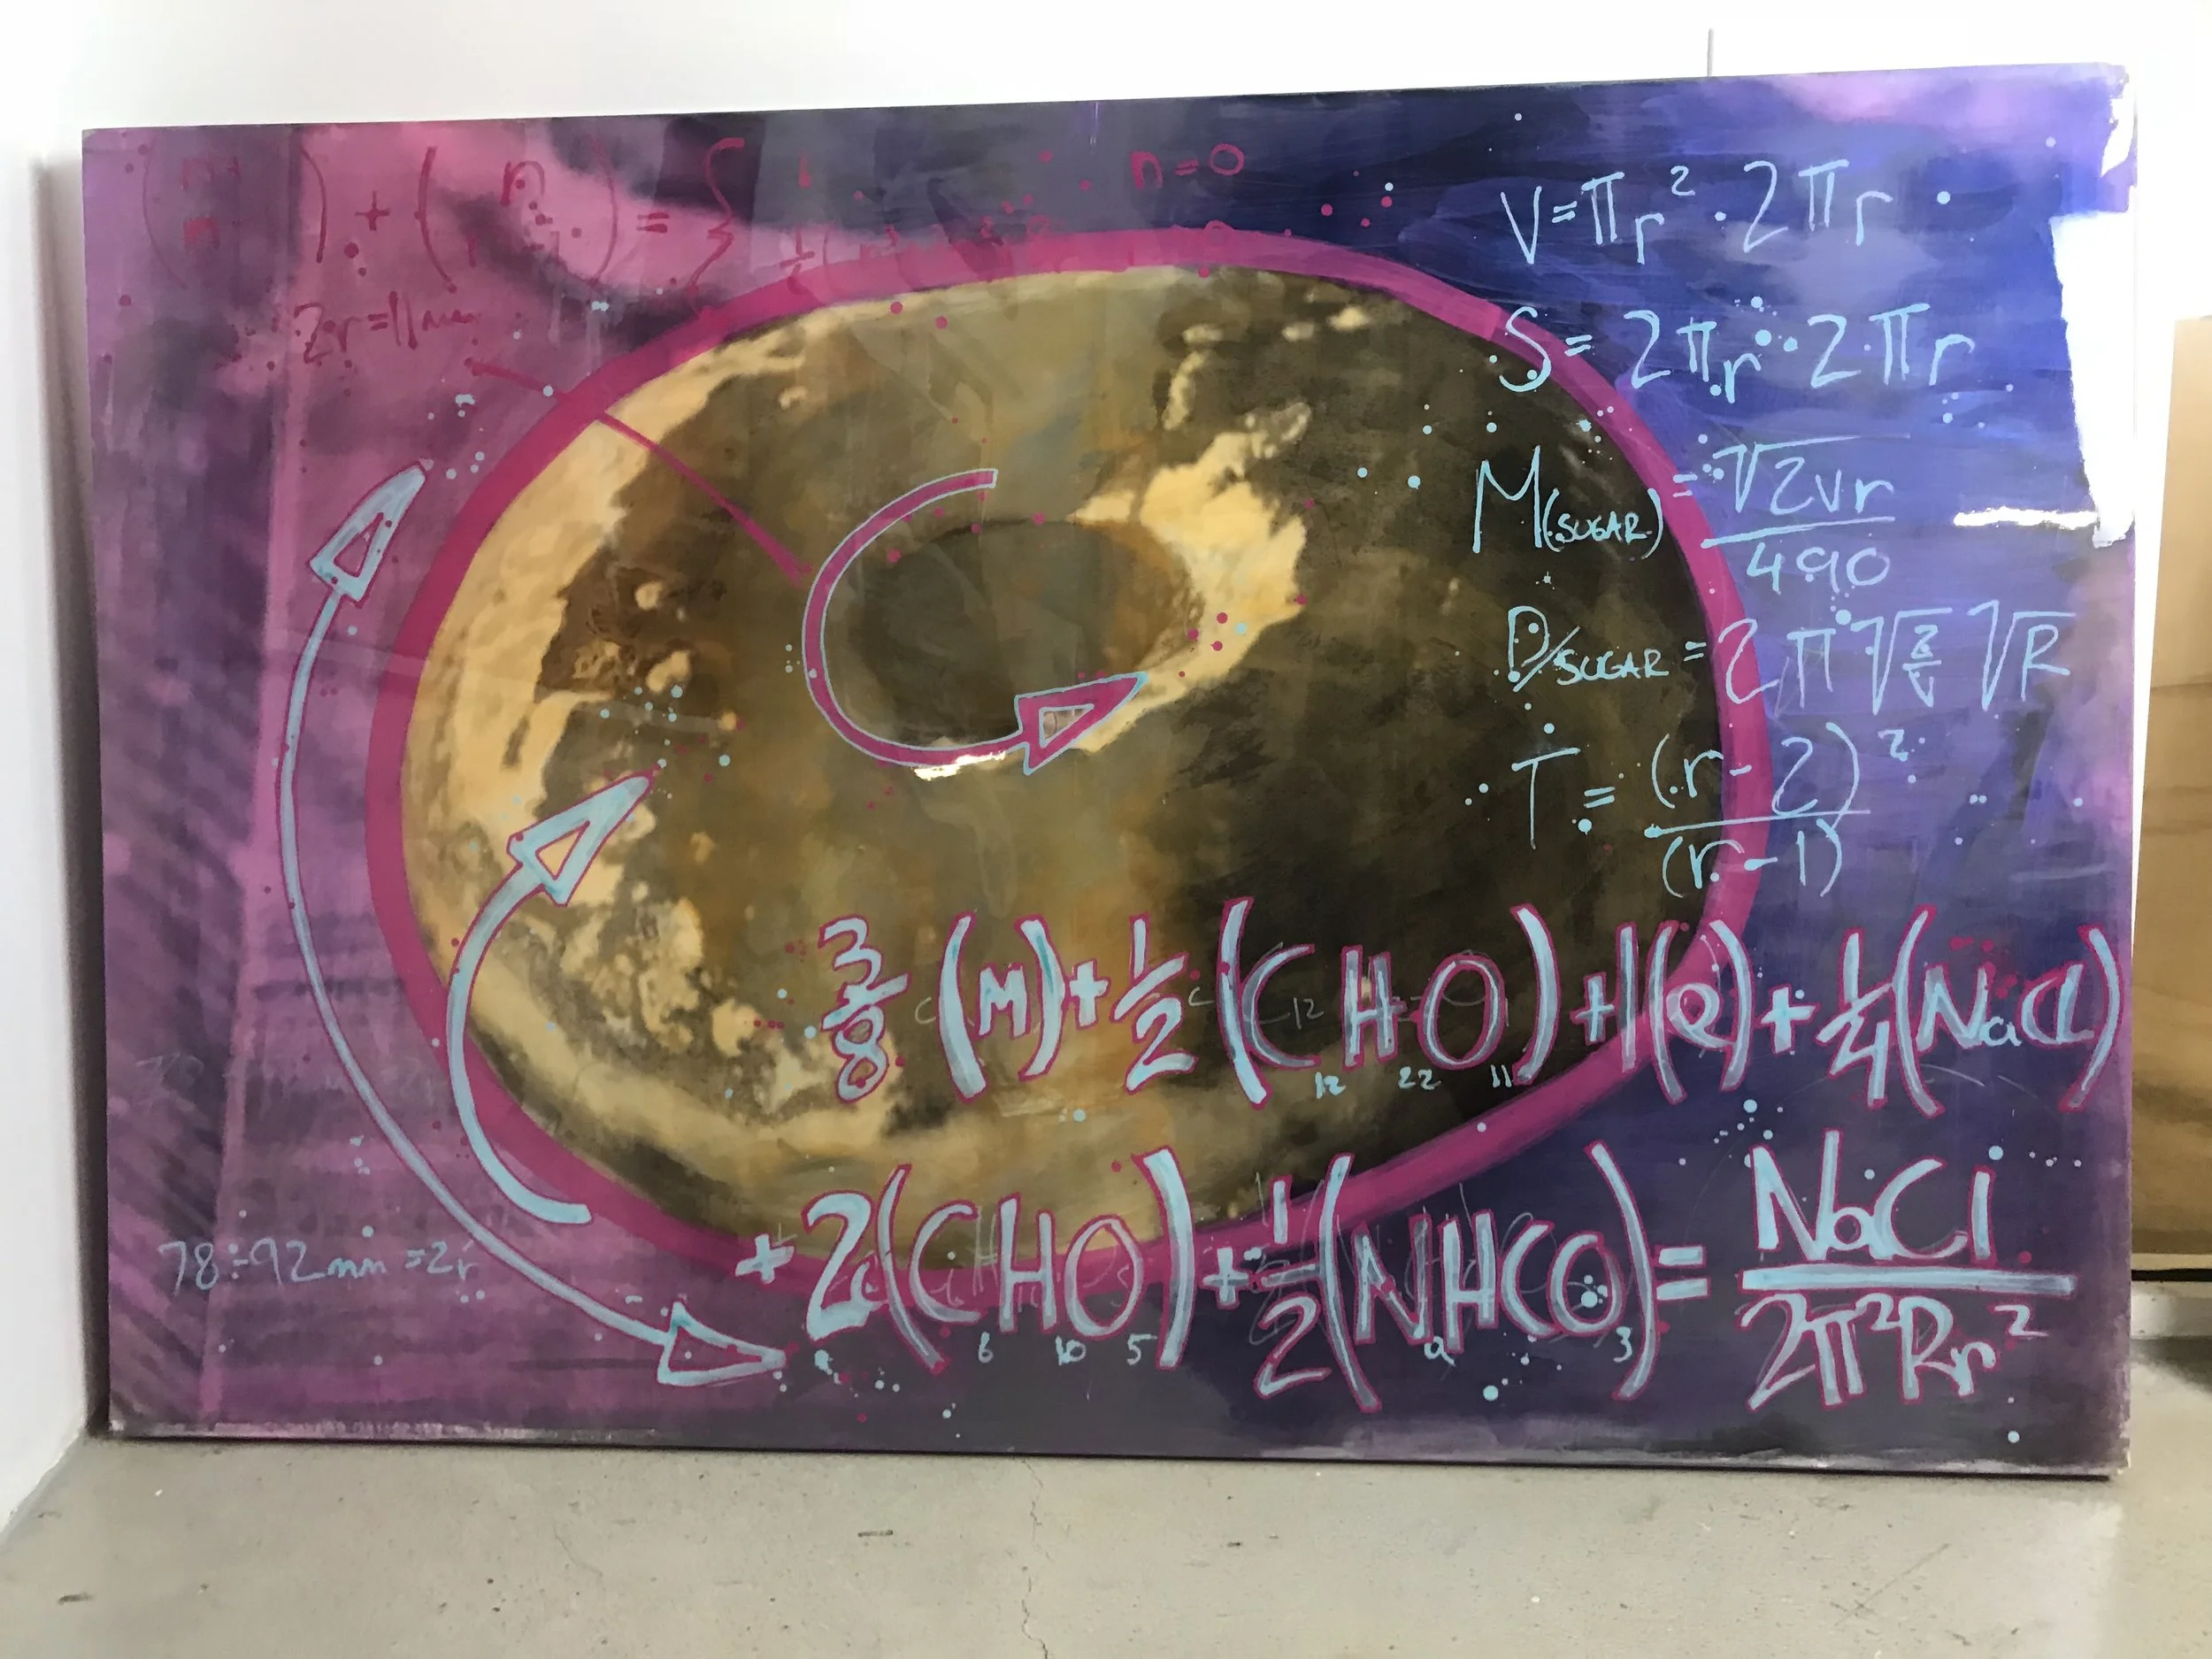 n=0
2r=11mm
V=πr²·2πr
S=2πr·2πr
M(SUGAR)=√2vr/490
D/SUGAR=2π√ √R
T=(r-2)²/(r-1)
3/8(M)+1/2(C₁₂H₂₂O₁₁)+1(Q)+1/4(NaCl)
+2(C₆H₁₀O₅)+1/2(NaHCO₃)=NaCl/2π²Rr²
78÷92mm=2r